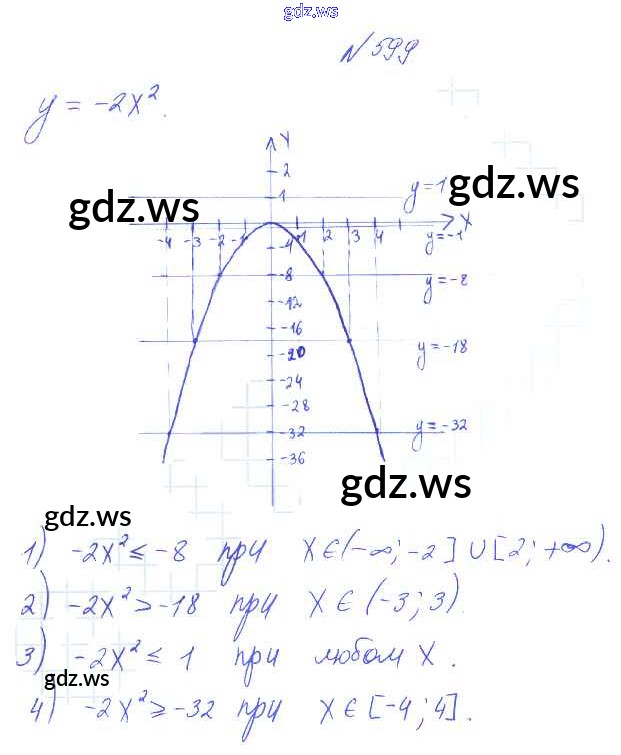 gdz.ws
N 599
y = -2x².
Y
2
1
y=1
gdz.ws
gdz.ws
X
-4 -3 -2 -1 1 2 3 4
y=-1
-4
-8
y=-8
-12
-16
-20
y=-18
-24
-28
-32
y=-32
-36
gdz.ws
gdz.ws
1) -2x² ≤ -8 при x∈(-∞; -2] ∪ [2; +∞).
2) -2x² > -18 при x∈(-3; 3).
3) -2x² ≤ 1 при любом x.
gdz.ws
4) -2x² ≥ -32 при x∈[-4; 4].